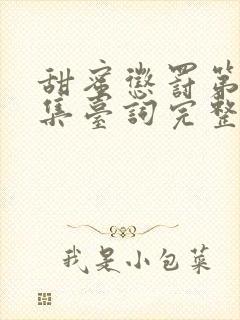 甜蜜懲罰第
集臺詞完整
我是小包菜